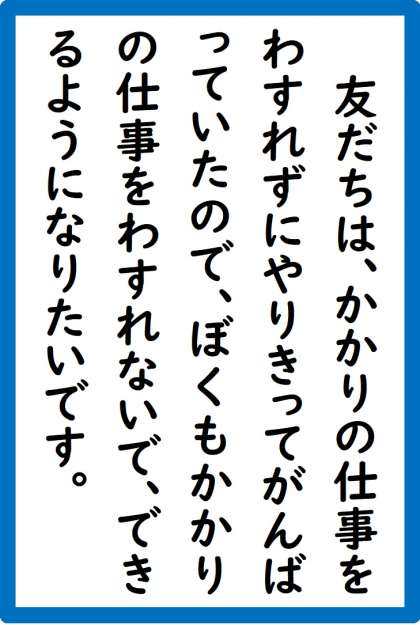 友だちは、かかりの仕事を
わすれずにやりきってがんば
っていたので、ぼくもかかり
の仕事をわすれないで、でき
るようになりたいです。